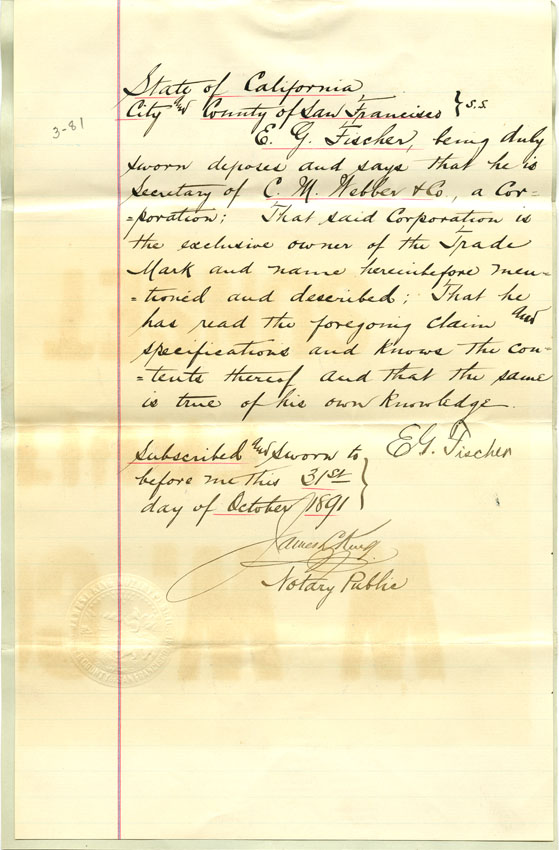 State of California,
City and County of San Francisco } s.s.
3-81
E. G. Fischer, being duly
sworn deposes and says that he is
Secretary of C. M. Webber & Co., a Cor-
-poration; That said Corporation is
the exclusive owner of the Trade
Mark and name hereinbefore men-
-tioned and described; That he
has read the foregoing claim and
specifications and knows the con-
-tents thereof and that the same
is true of his own knowledge.
E. G. Fischer
Subscribed and sworn to
before me this 31st
day of October 1891
James L. King
Notary Public